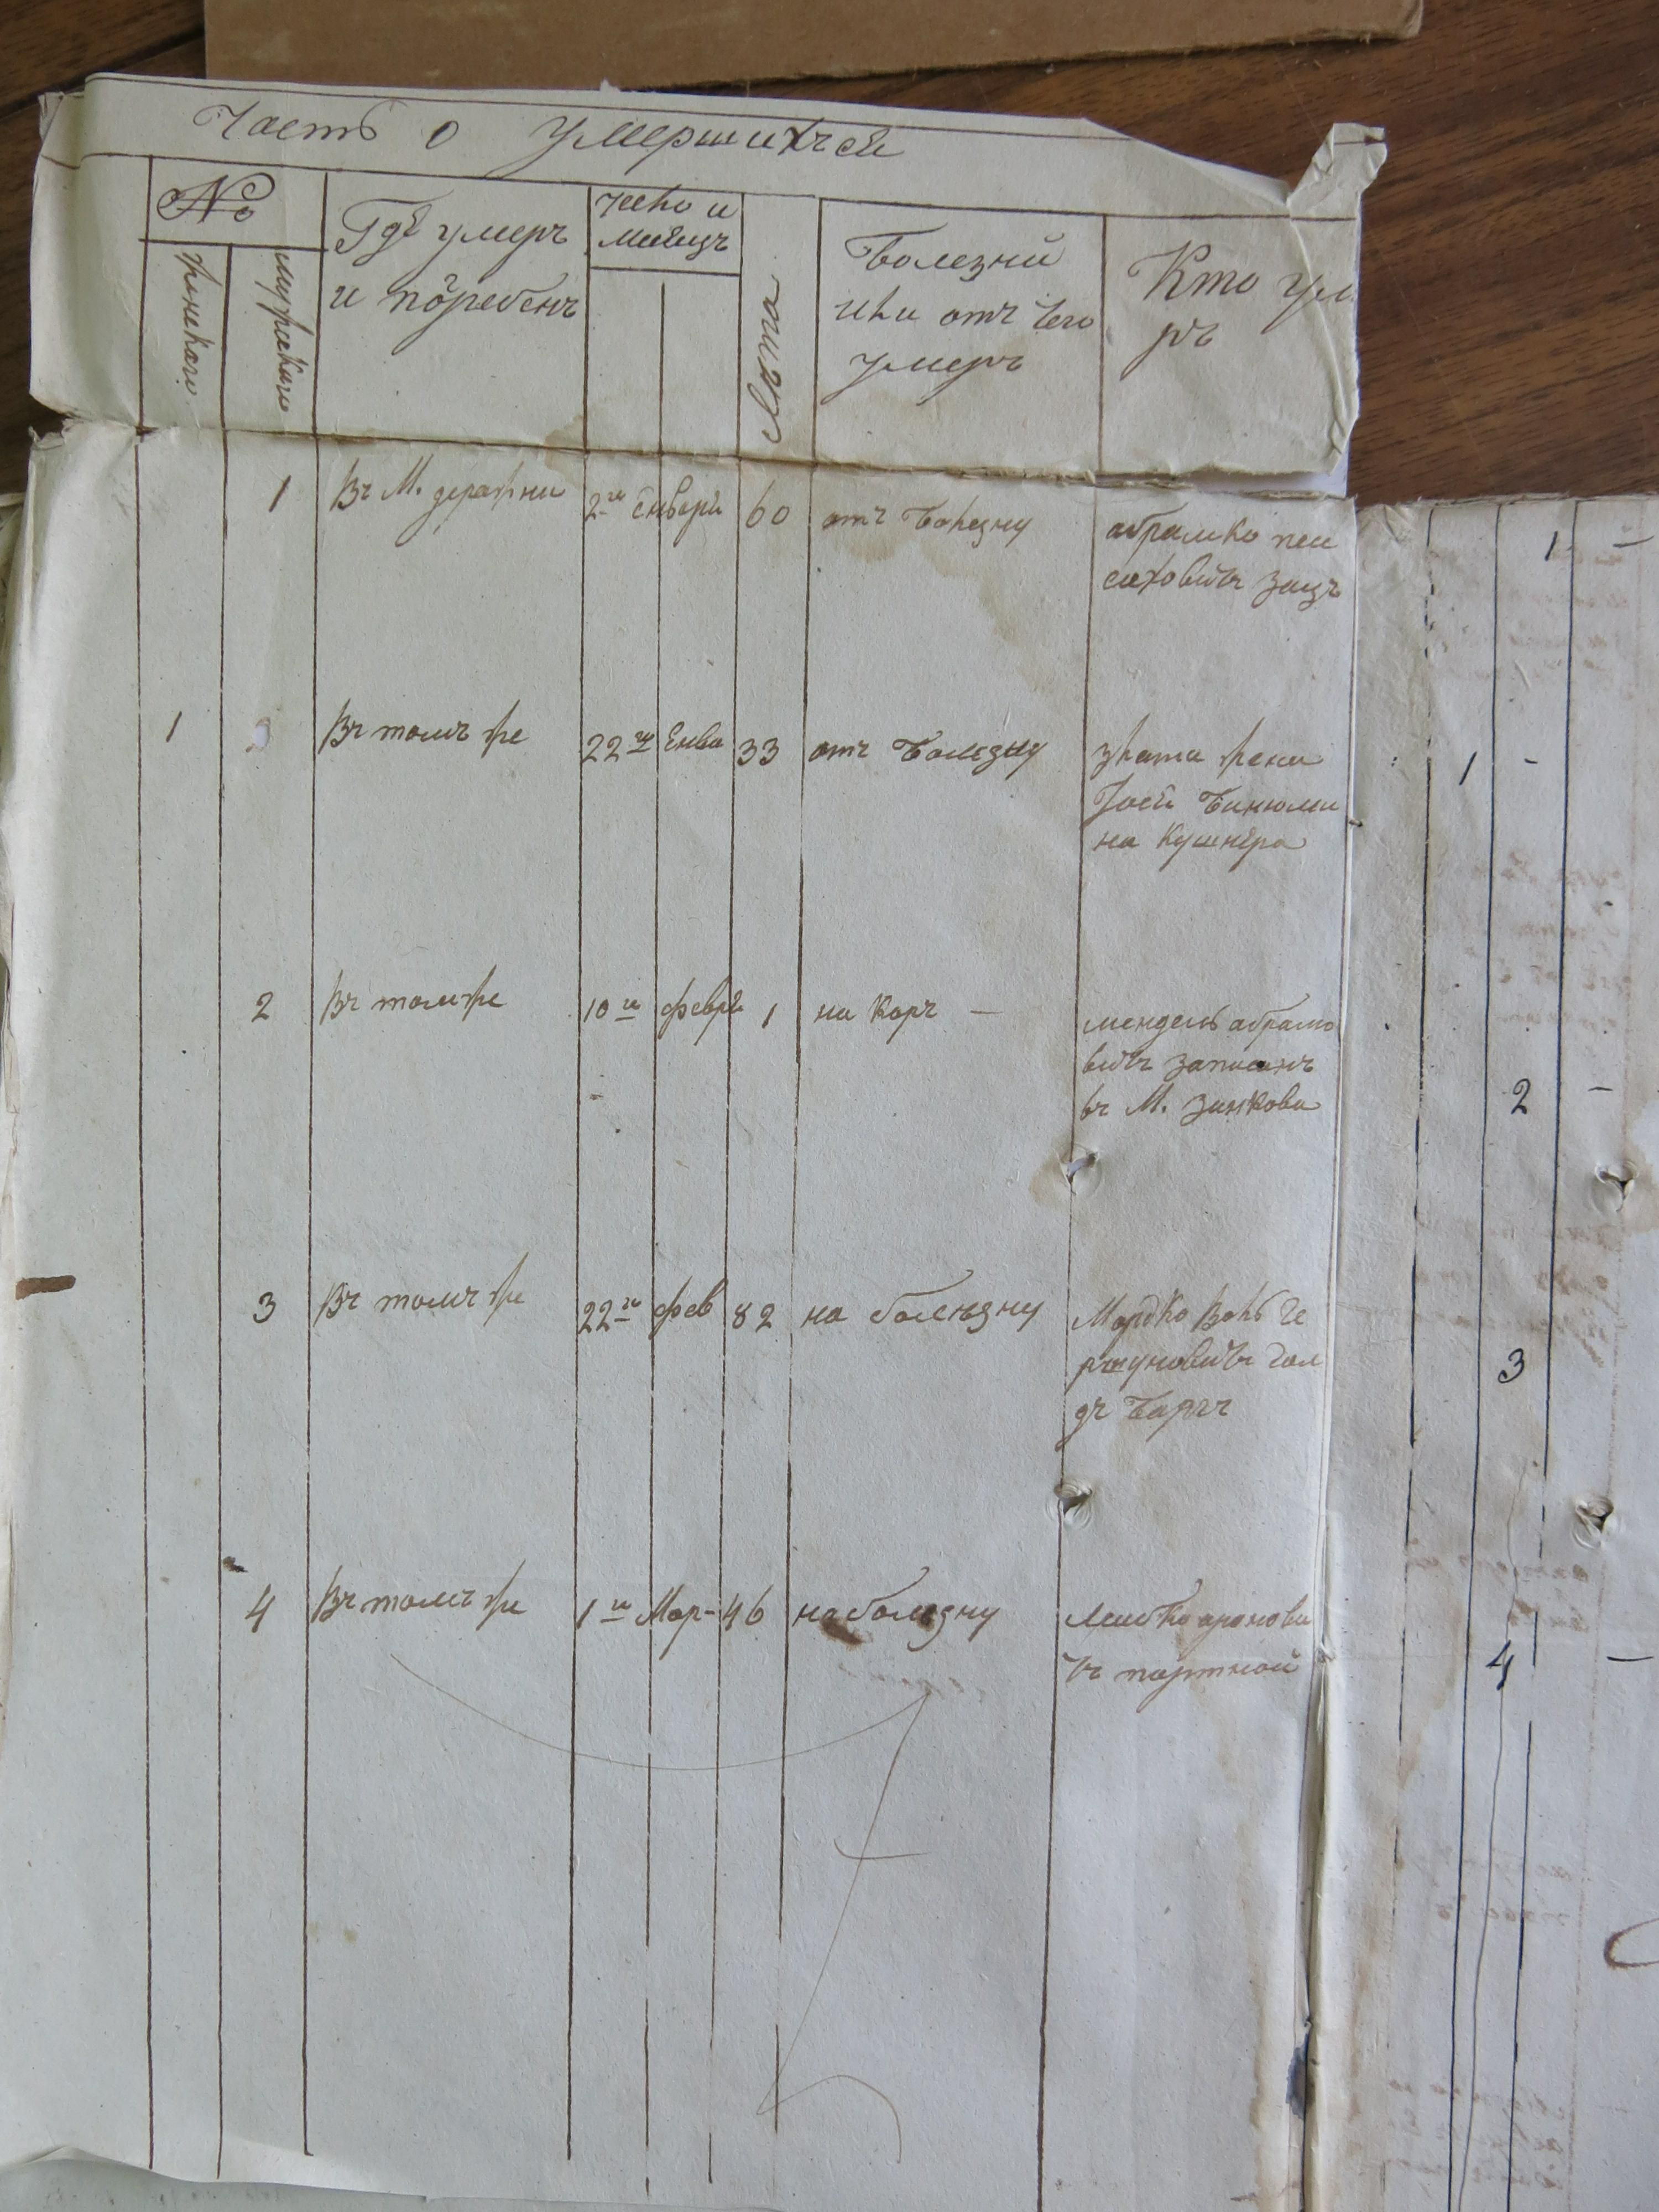 Часть о умершихъ
№
женскаго
мужескаго
Где умеръ
и погребенъ
Число и
месецъ
Лета
Болезни
или отъ чего
умеръ
Кто уме
ръ
1 Въ М. деражни 2го Енваря 60 отъ болезну абрамко пей
саховичъ зацъ
1 Въ томъ же 22го Енва 33 отъ болезну злата жена
Иосея Бинюми
на Кушнера
2 Въ томже 10го февра 1 на Коръ — мендель абрамо
вичъ записанъ
въ М. зинкова
3 Въ томъ же 22го фев 82 на болезну Мордко Воль Ге
ршуновичъ Гол
дъ Баргъ
4 Въ томъ же 1го Мар- 46 на болезну Лейбко аронови
чъ портной
1 —
1 -
2 -
3
4 —